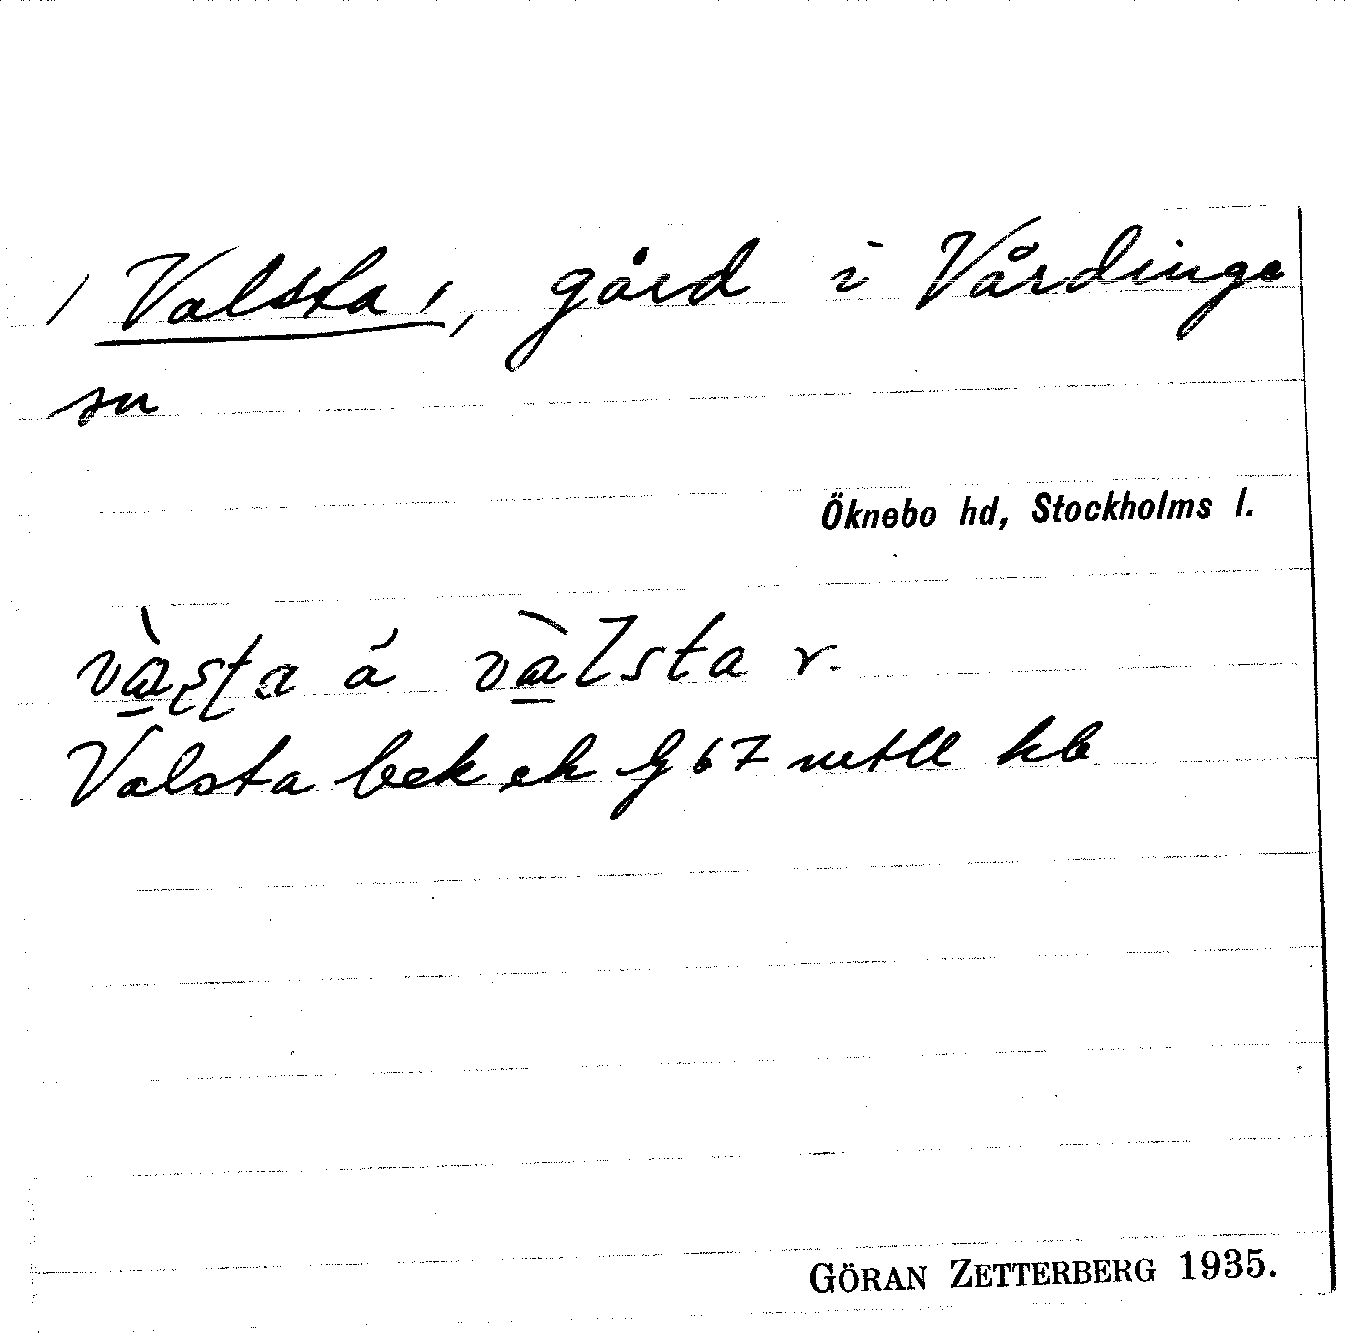 / Valsta /, gård i Vårdinge
sn
Öknebo hd, Stockholms l.
vàʂʈa á vàlsta r.
Valsta bek ek G 67 mtll kb
GÖRAN ZETTERBERG 1935.